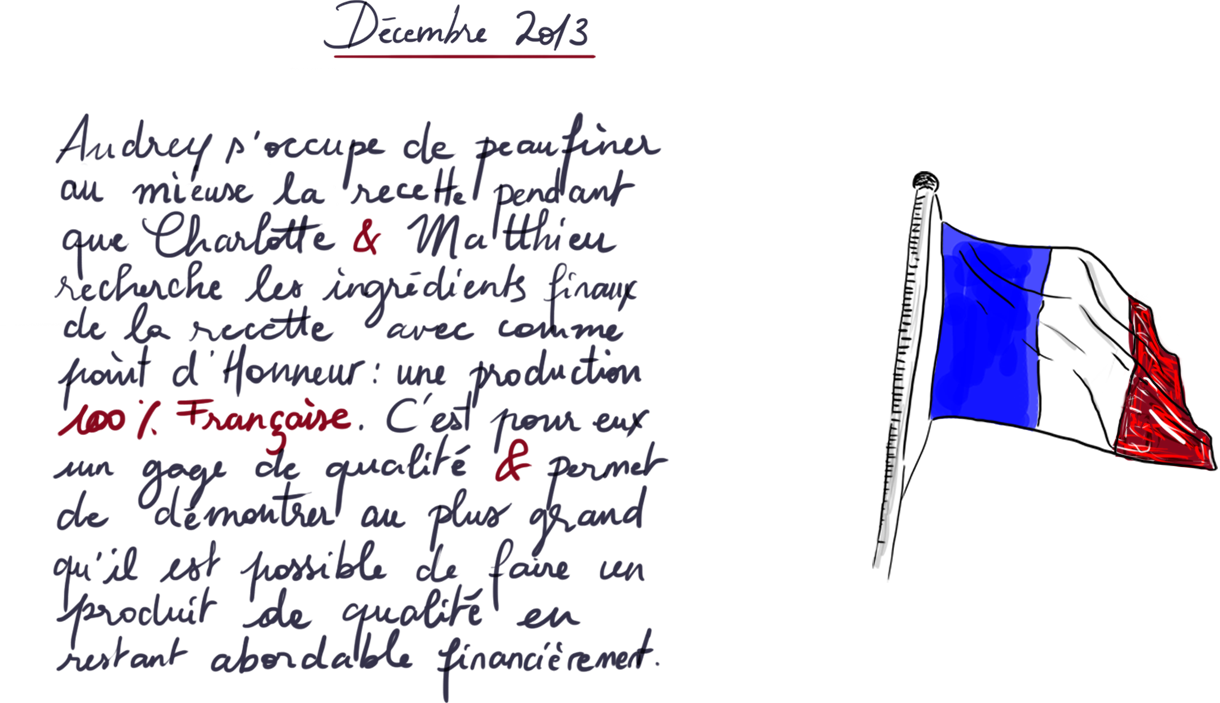 Décembre 2013
Audrey s'occupe de peaufiner
au mieuse la recette pendant
que Charlotte & Matthieu
recherche les ingrédients finaux
de la recette avec comme
point d'Honneur : une production
100% Française. C'est pour eux
un gage de qualité & permet
de démontrer au plus grand
qu'il est possible de faire un
produit de qualité en
restant abordable financièrement.